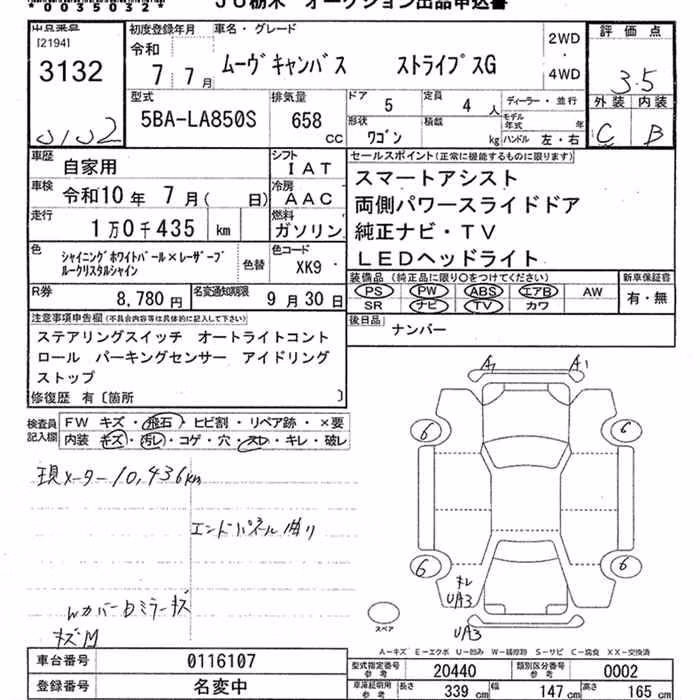 *0055032*
JU栃木 オークション出品申込書
出品番号
[2194]
3132
初度登録年月
令和
7 7月
車名・グレード
ムーヴキャンバス ストライプスG
2WD
・
4WD
評価点
3.5
外装 内装
C B
型式
5BA-LA850S
排気量
658
CC
ドア 5
定員 4 人
形状 ワゴン
積載 kg
ディーラー・並行
モデル年式 年
ハンドル 左・右
車歴 自家用
シフト IAT
車検 令和10年 7月( 日)
冷房 AAC
走行 1万0千435 km
燃料 ガソリン
色 シャイニングホワイトパール×レーザーブルークリスタルシャイン
色替
色コード XK9
R券 8,780円
名変通知期限 9月30日
セールスポイント(正常に機能するものに限ります)
スマートアシスト
両側パワースライドドア
純正ナビ・TV
LEDヘッドライト
装備品 (純正品に限り○をつけてください)
PS PW ABS エアB AW
SR ナビ TV カワ
新車保証書
有・無
後日品 ナンバー
注意事項申告欄(不具合内容等は具体的に記入して下さい)
ステアリングスイッチ オートライトコント
ロール パーキングセンサー アイドリング
ストップ
修復歴 有〔箇所 〕
検査員記入欄
FW キズ・飛石・ヒビ割・リペア跡・×要
内装 キズ・汚レ・コゲ・穴・スレ・キレ・破レ
現メーター10,436km
エンドパネル曲り
Wカバー Dミラーキズ
キズM
A1 A1
6 6
6 6
スレ
UA3
UA3
スペア
A-キズ E-エクボ U-凹み W-補修跡 S-サビ C-腐食 XX-交換済
車台番号 0116107
登録番号 名変中
型式指定番号 参考 20440
類別区分番号 参考 0002
車庫証明用 参考
長さ 339 cm
幅 147 cm
高さ 165 cm